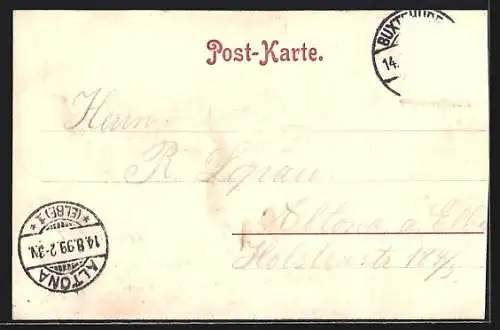 Post-Karte.
BUXTEHUDE
14.
Herrn
R.
Altona a/Elbe
Holstenstr
ALTONA
14.8.99.2-3N.
* (ELBE) 1 *